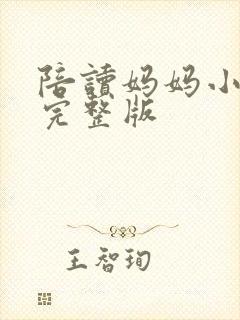 陪讀妈妈小
完整版
王智珣